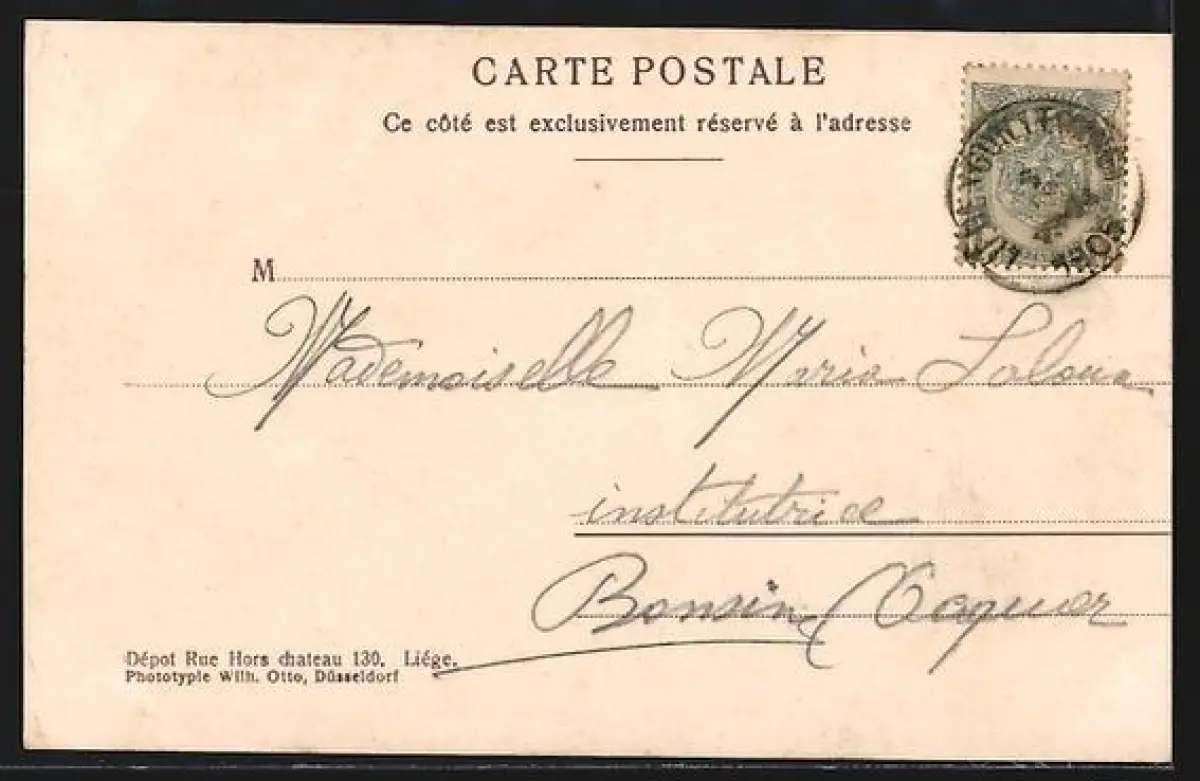 CARTE POSTALE
Ce côté est exclusivement réservé à l'adresse
M
Mademoiselle Maria
institutrice
Bonsin
Dépot Rue Hors chateau 130. Liége.
Phototypie Wilh. Otto, Düsseldorf